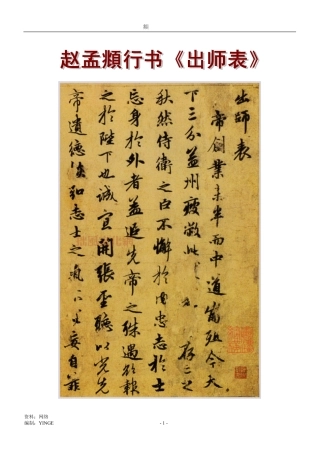 赵孟頫行书《出师表》
出師表
帝創業未半而中道崩殂今天
下三分益州疲敝此存亡之
秋然侍衛之臣不懈於内忠志之士
忘身於外者盖追先帝之殊遇欲報
之於陛下也誠宜開張聖聽以光先
帝遺德恢弘志士之氣不宜妄自菲
资料：网络
编制：YINGE
- 1 -